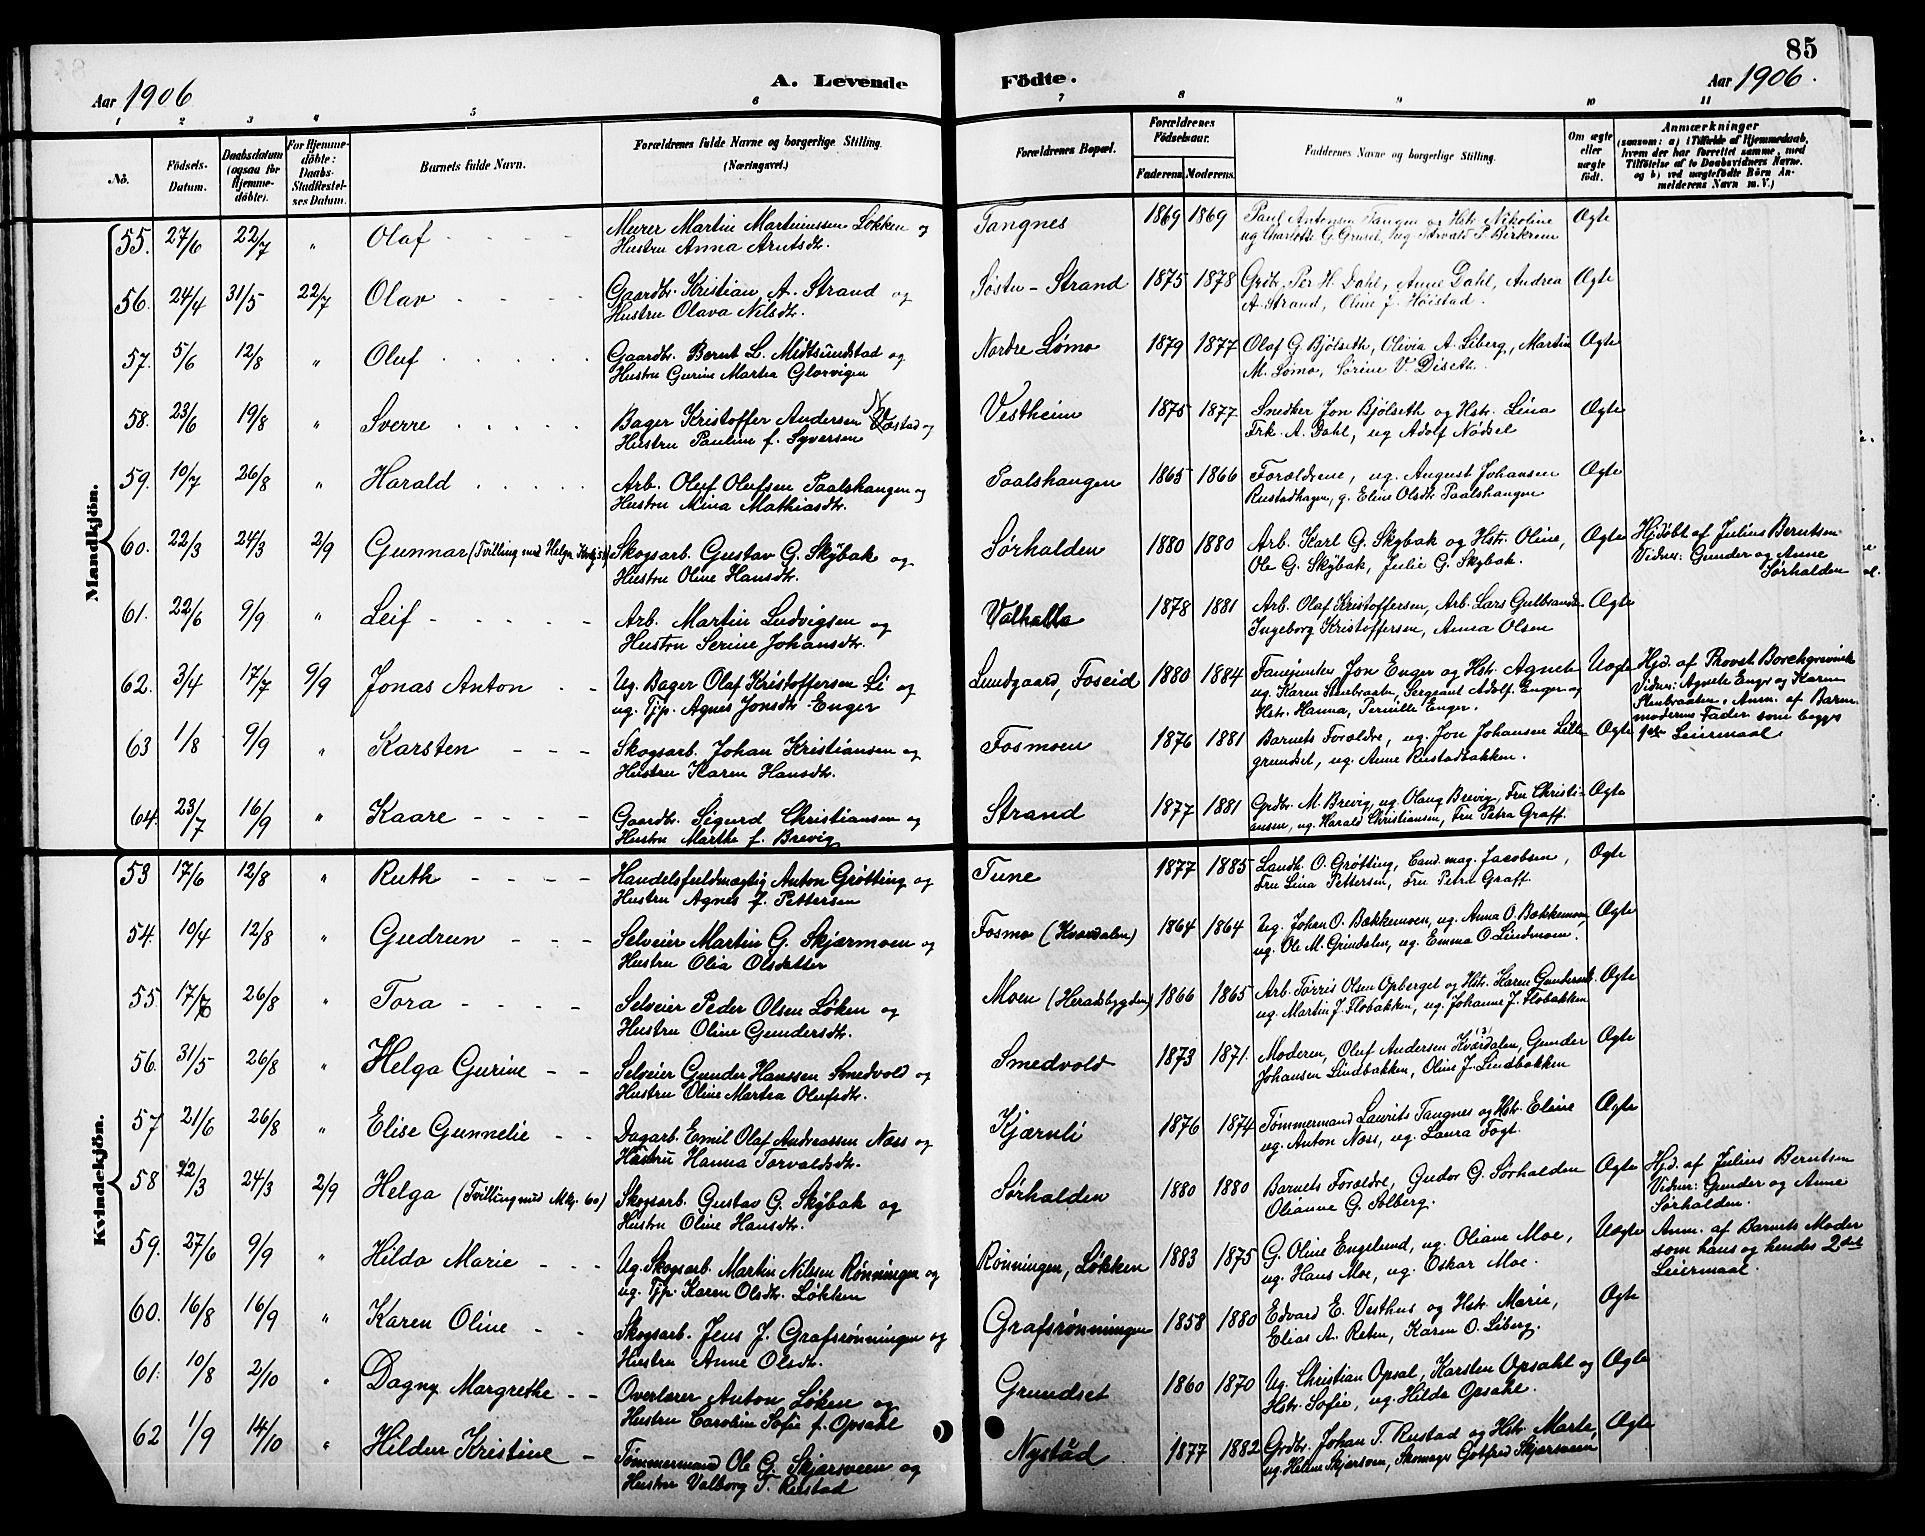 85
Aar 1906
A. Levende
Födte.
Aar 1906.
1 2 3 4 5 6 7 8 9 10 11
No.
Födsels-Datum.
Daabsdatum (ogsaa for Hjemmedöbte).
For Hjemmedöbte: Daabs-Stadfæstelses Datum.
Barnets fulde Navn.
Forældrenes fulde Navne og borgerlige Stilling. (Næringsvei.)
Forældrenes Bopæl.
Forældrenes Födselsaar.
Faderens. Moderens.
Faddernes Navne og borgerlige Stilling.
Om ægte eller uægte födt.
Anmærkninger
(saasom: a) i Tilfælde af Hjemmedaab, hvem der har forrettet samme, med Tilföielse af to Daabsvidners Navne. og b) ved uægtefödte Börn Anmelderens Navn m. V.)
Mandkjön.
55. 27/6 22/7 " Olaf Murer Martin Martinussen Løkken og Tangnes 1869 1869 Paul Antonsen Tangen og Hstr Nikoline Ægte
Hustru Anna Arntsdtr. ug Charlotte G. Grusel, ug. Torvald P. Birkrem
56. 24/4 31/5 22/7 Olav Gaardbr. Kristian A. Strand og Søstu-Strand 1875 1878 Grdbr. Per H. Dahl, Anne Dahl, Andrea Ægte
Hustru Olava Nilsdtr. A. Strand, Oline f. Høistad.
57. 5/6 12/8 " Oluf Gaardbr. Bernt L. Midtsundstad og Nordre Lømo 1879 1877 Olaf G Bjølseth, Olivia A. Liberg, Martin Ægte
Hustru Gurine Martea Glorvigen M. Lømo, Sørine V. Diseth.
58. 23/6 19/8 " Sverre Bager Kristoffer Andersen Væstad og Vestheim 1875 1877 Snedker Jon Bjølseth og Hstr. Lina Ægte
Hustru Pauline f. Syversen Frk. A. Dahl, ug Adolf Nødsel
59. 10/7 26/8 " Harald Arb. Oluf Olufsen Paalshaugen og Paalshaugen 1865 1866 Forældrene, ug. August Johansen Ægte
Hustru Mina Mathiasdtr. Rustadhagen, g. Eline Olsdtr Paalshaugen
60. 22/3 24/3 2/9 Gunnar (Tvilling med Helga Kvkj. 58) Skogsarb. Gustav G. Skybak og Sørhalden 1880 1880 Arb. Karl G. Skybak og Hstr. Oline, Ægte Hjdøbt af Julius Berntsen
Hustru Oline Hansdtr. Ole G. Skybak, Julie G. Skybak. Vidner: Gunder og Anne Sørhalden
61. 22/6 9/9 " Leif Arb. Martin Ludvigsen og Valhalla 1878 1881 Arb. Olaf Kristoffersen, Arb. Lars Gulbrands- Ægte
Hustru Serine Johansdtr. Ingeborg Kristoffersen, Anna Olsen
62. 3/4 17/7 9/9 Jonas Anton Ug. Bager Olaf Kristoffersen Li og Lundgaard, Foseid 1880 1884 Fanejunker Jon Enger og Hstr Agnete Uægte Hjd. af Provst Borchgrevink
ug. Tjp. Agnes Jonsdtr Enger ug. Karen Stenbraaten, Sergeant Adolf Enger og Vidner: Agnete Enger og Karen
Hstr. Hanna, Pernille Enger. Stenbraaten. Anm. af Barnemoderens Fader som begges 1ste Leiermaal
63 1/8 9/9 " Karsten Skogsarb. Johan Kristiansen og Fosmoen 1876 1881 Barnets Forældre, ug. Jon Johansen Lille- Ægte
Hustru Karen Hansdtr. grundset, ug. Anne Rustadbakken.
64. 23/7 16/9 " Kaare Gaardbr. Sigurd Christiansen og Strand 1877 1881 Grdbr. M. Brevig, ug. Olaug Brevig, Fru Christi- Ægte
Hustru Marthe f. Brevig ansen, ug. Harald Christiansen, Fru Petra Graff.
Kvindekjön.
53 17/6 12/8 " Ruth Handelsfuldmægtig Anton Grøtting og Tune 1877 1885 Landh. O. Grøtting, Cand. mag. Jacobsen, Ægte
Hustru Agnes f. Pettersen Fru Lina Pettersen, Fru Petra Graff.
54. 10/4 12/8 " Gudrun Selveier Martin G. Skjærmoen og Fosmo (Kværdalen) 1864 1864 Ug. Johan O. Bækkemoen, ug. Anna O. Bækkemoen, Ægte
Hustru Olia Olsdatter ug. Ole M. Grindalen, ug. Emma O. Lindmoen.
55. 17/6 26/8 " Tora Selveier Peder Olsen Løken og Moen (Heradsbygden) 1866 1865 Arb. Tørris Olsen Opberget og Hstr. Karen Gundersdtr Ægte
Hustru Oline Gundersdtr. ug. Martin J. Flobakken, ug. Johanne J. Flobakken
56. 31/5 26/8 " Helga Gurine Selveier Gunder Hanssen Smedvold og Smedvold 1873 1871. Moderen, Oluf Andersen Kværdalen, Gunder Ægte
Hustru Oline Martea Olufsdtr. Johansen Lindbakken, Oline J. Lindbakken
57 21/6 26/8 " Elise Gunnelie Dagarb. Emil Olaf Andreassen Næss og Kjærnli 1876 1874 Tømmermand Laurits Tangnes og Hstr. Eline Ægte
Hustru Hanna Torvaldsdtr. ug. Anton Næss, ug. Laura Fogt.
58 22/3 24/3 2/9 Helga (Tvilling med Mkj. 60) Skogsarb. Gustav G. Skybak og Sørhalden 1880 1880 Barnets Forældre, Gudor G. Sørhalden Ægte Hjd. af Julius Berntsen
Hustru Oline Hansdtr. Olianne G. Solberg. Vidner: Gunder og Anne Sørhalden.
59. 27/6 9/9 " Hilda Marie Ug. Skogsarb. Martin Nilssen Rønningen og Rønningen, Løkken 1883 1875 G. Oline Engelund, ug. Oliane Moe, Uægte Anm. af Barnets Moder
ug. Tjp. Karen Olsdtr. Løkken ug. Hans Moe, ug. Oskar Moe. som hans og hendes 2det Leiermaal
60. 16/8 16/9 " Karen Oline Skogsarb. Jens J. Grafsrønningen og Grafsrønningen 1858 1880 Edvard E. Vesthus og Hstr. Marie, Ægte
Hustru Anne Olsdtr. Elias A. Reten, Karen O. Liberg.
61. 10/8 2/10 " Dagny Margrethe Overlærer Anton Løken og Grundset 1860 1870 Ug. Christian Opsal, Karsten Opsahl og Ægte
Hustru Caroline Sofie f. Opsahl Hstr. Sofie, ug. Hilda Opsahl.
62 1/9 14/10 " Hildur Kristine Tømmermand Ole G. Skjærsveen og Nystad 1877 1882 Grdbr. Johan T. Rustad og Hstr. Marte, Ægte
Hustru Valborg T. Rustad ug. Helene Skjærsveen, Skomager Gotfred Skjærsveen